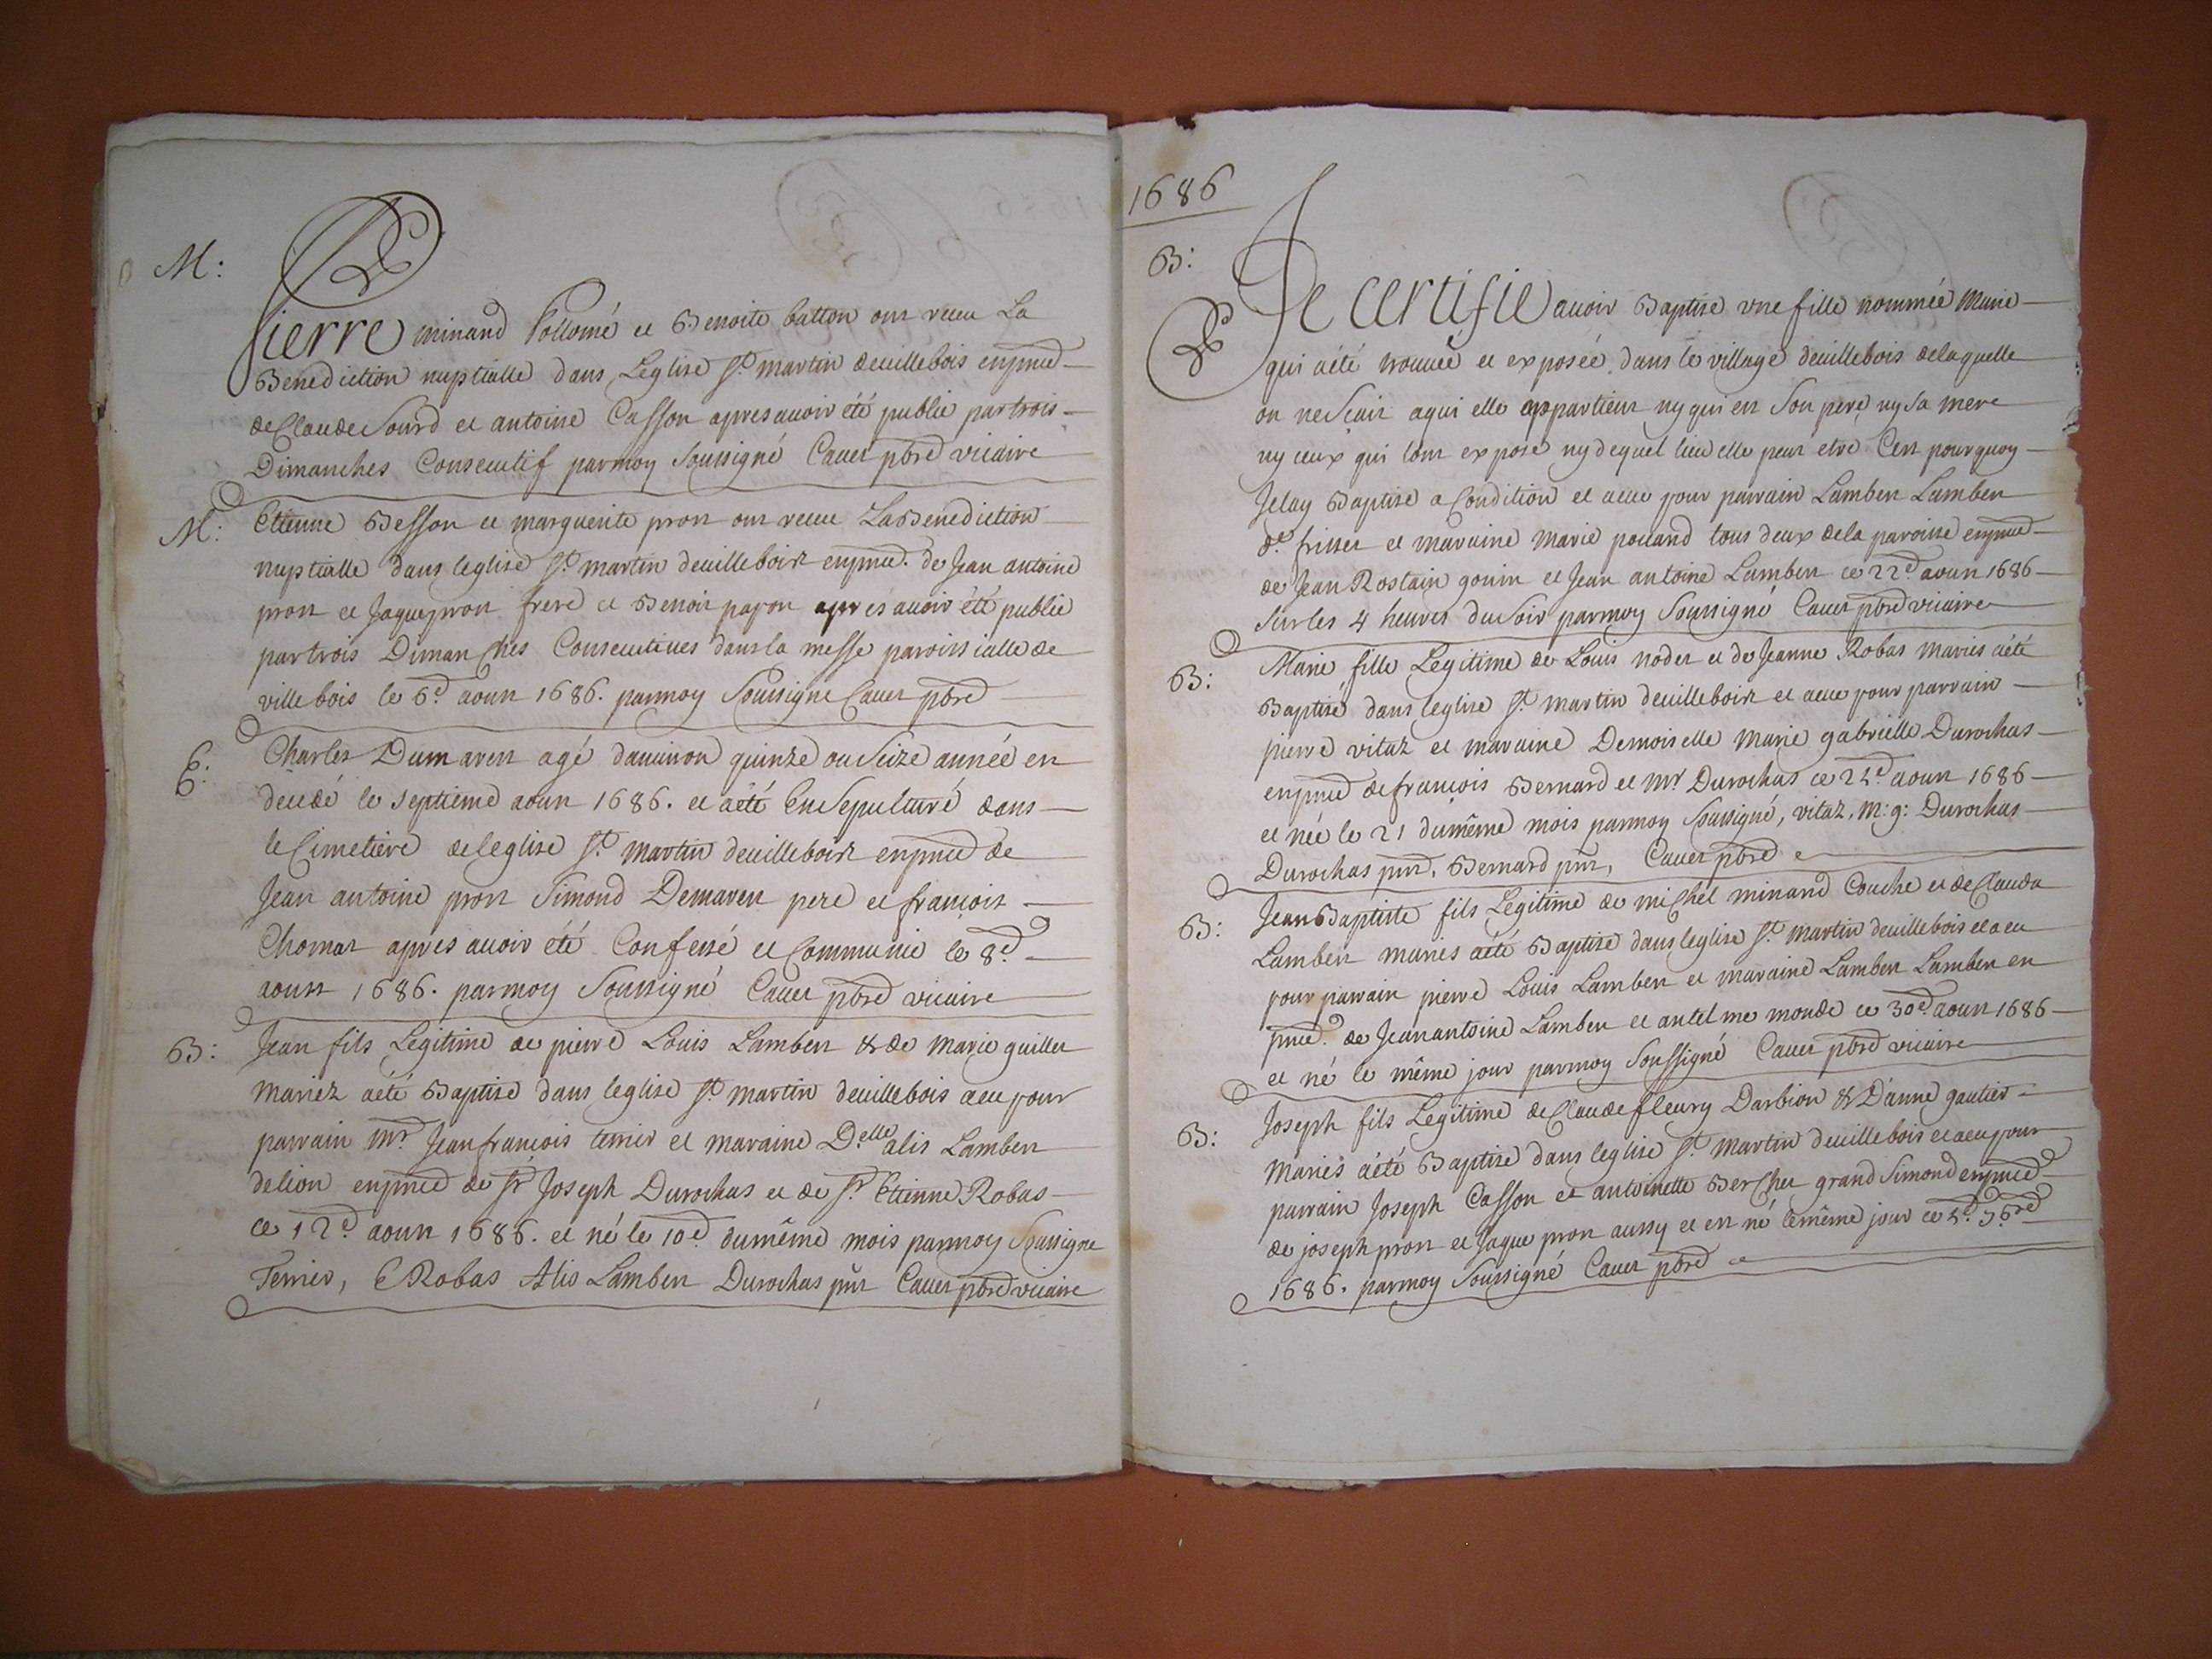 M:
Pierre minand Pollomé et Benoite batton ont receu La
Benediction nuptialle dans Leglise St. martin deuillebois enpnce
de Claude Sourd et antoine Casson apres auoir été publie par trois
Dimanches Consecutif parmoy Soussigné Cauet pbre vicaire
M: Etienne Besson et marguerite pron ont receu La Benediction
nuptialle dans leglise St. martin deuillebois enpnce. de Jean antoine
pron et Jaque pron frere et Benoit papon apres auoir été publie
par trois Dimanches Consecutiues dans la messe paroissialle de
ville bois le 6e aoust 1686. parmoy Soussigne Cauet pbre
E: Charles Dumaret agé dauiron quinze ou Seize année est
decedé le septieme aoust 1686. et aété EnSepulturé dans
le Cimetiere deleglise St. martin deuillebois enpnce de
Jean antoine pron Simond Demaret pere et francois
Chomat apres auoir été Confessé et Communié le 8e
aoust 1686. parmoy Soussigné Cauet pbre vicaire
B: Jean fils Legitime de pierre Louis Lambert & de Marie guillet
mariez aété Baptise dans leglise St. martin deuillebois aeu pour
parrain Mr. Jean francois terrier et maraine Delle alis Lambert
delion enpnce de Sr. Joseph Durochas et de Sr. Etienne Robas
ce 12e aoust 1686. et né le 10e dumême mois parmoy Soussigne
Terrier, E Robas Alis Lambert Durochas pnt Cauet pbre vicaire
1686
B:
Je certifie auoir Baptise une fille nommée Marie
qui aété trouuée et exposée dans le village deuillebois delaquelle
on ne Sçait aqui elle appartient ny qui est Son pere ny Sa mere
ny ceux qui lont exposé ny dequel lieu elle peut etre Cest pourquoy
Jelay Baptise a Condition et aeue pour parrain Lambert Lambert
de. frisset et maraine Marie poiland tous deux dela paroisse enpnce
de Jean Rostain gonin et Jean antoine Lambert ce 22e aoust 1686
Sur les 4 heures du Soir parmoy Soussigné Cauet pbre vicaire
B: Marie fille Legitime de Louis nodet et de Jeanne Robas maries aété
Baptisé dans leglise St. martin deuillebois et aeue pour parrain
pierre vitaz et maraine Demoiselle Marie gabrielle Durochas
enpnce defrancois Bernard et Mr Durochas ce 25e aoust 1686
et née le 21 dumême mois parmoy Soussigné, vitaz, M: g: Durochas
Durochas pnt, Bernard pnt, Cauet pbre
B: Jean Baptiste fils Legitime de michel minand Couche et de Clauda
Lambert maries aété Baptise dans leglise St. martin deuillebois et a eu
pour parrain pierre Louis Lambert et maraine Lambert Lambert en
pnce. de Jean antoine Lambert et antelme monde ce 30e aoust 1686
et né le même jour parmoy Soussigné Cauet pbre vicaire
B: Joseph fils Legitime de Claude fleury Darbion & D'anne gautier
Mariés aété Baptise dans leglise St. Martin deuillebois et aeu pour
parrain Joseph Casson et antoinette Berchet grand Simond enpnce
de joseph pron et Jaque pron aussy et est né lemême jour ce 5e. 7bre
1686. parmoy Soussigné Cauet pbre